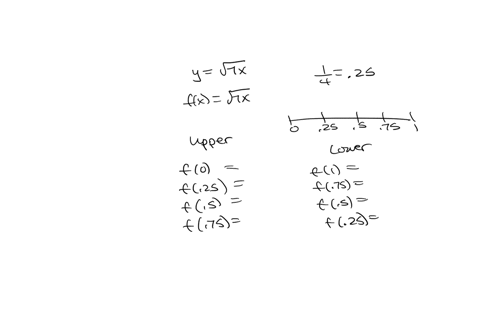 y = √7x
1/4 = .25
f(x) = √7x
0 .25 .5 .75 1
upper
f(0) =
f(.25) =
f(.5) =
f(.75) =
Lower
f(1) =
f(.75) =
f(.5) =
f(.25) =